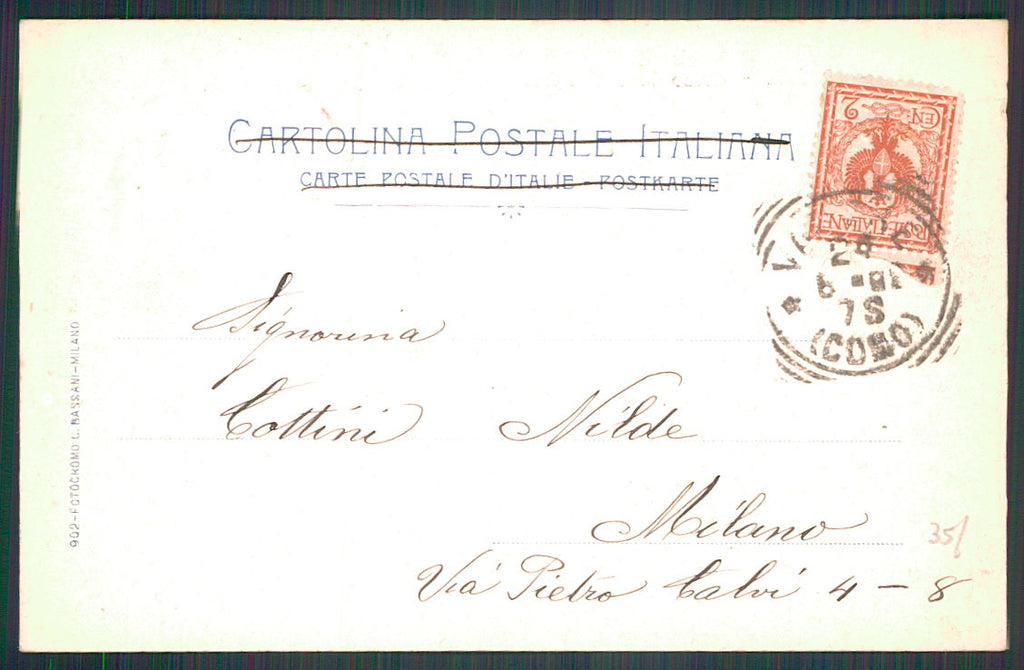 CARTOLINA POSTALE ITALIANA
CARTE POSTALE D'ITALIE - POSTKARTE
CEN. 2
POSTE ITALIANE
(COMO)
Signorina
Cottini Nilde
Milano
Via Pietro Calvi 4 - 8
35/
902-FOTOCROMO L. BASSANI-MILANO